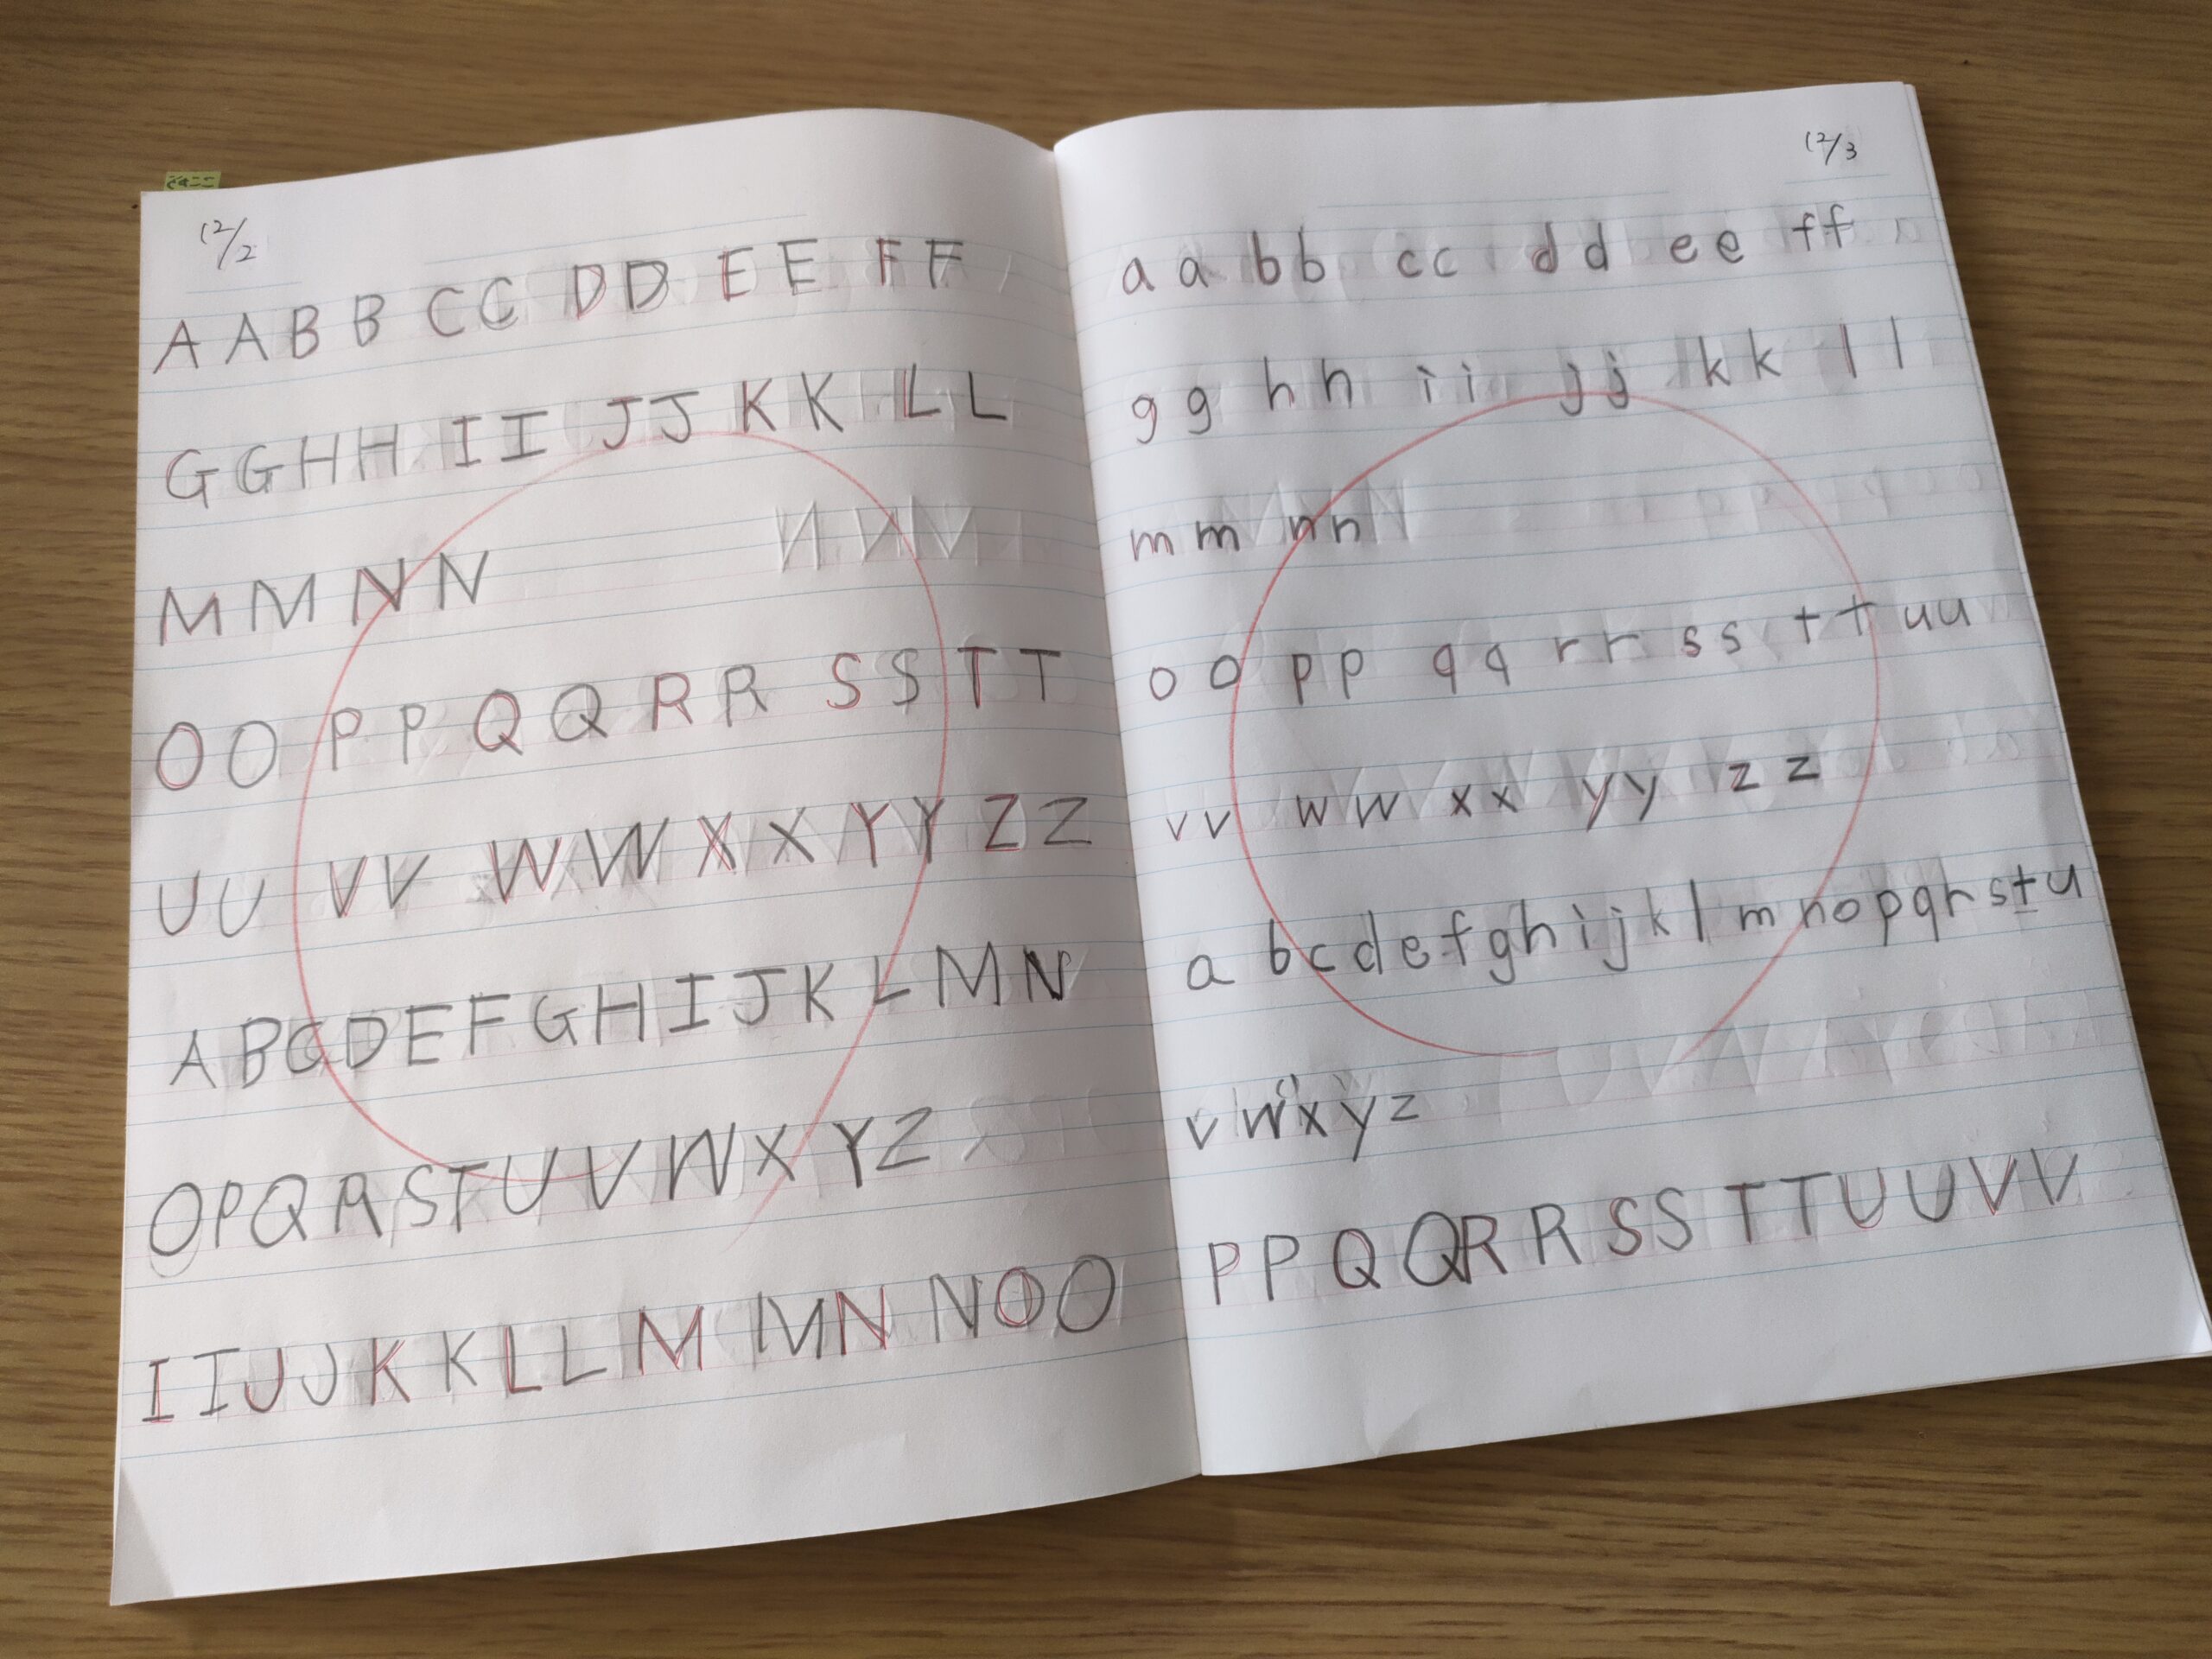 12/2
A A B B C C D D E E F F
G G H H I I J J K K L L
M M N N
O O P P Q Q R R S S T T
U U V V W W X X Y Y Z Z
A B C D E F G H I J K L M N
O P Q R S T U V W X Y Z
I I J J K K L L M M N N O O
12/3
a a b b c c d d e e f f
g g h h i i j j k k l l
m m n n
o o p p q q r r s s t t u u
v v w w x x y y z z
a b c d e f g h i j k l m n o p q r s t u
v w x y z
P P Q Q R R S S T T U U V V